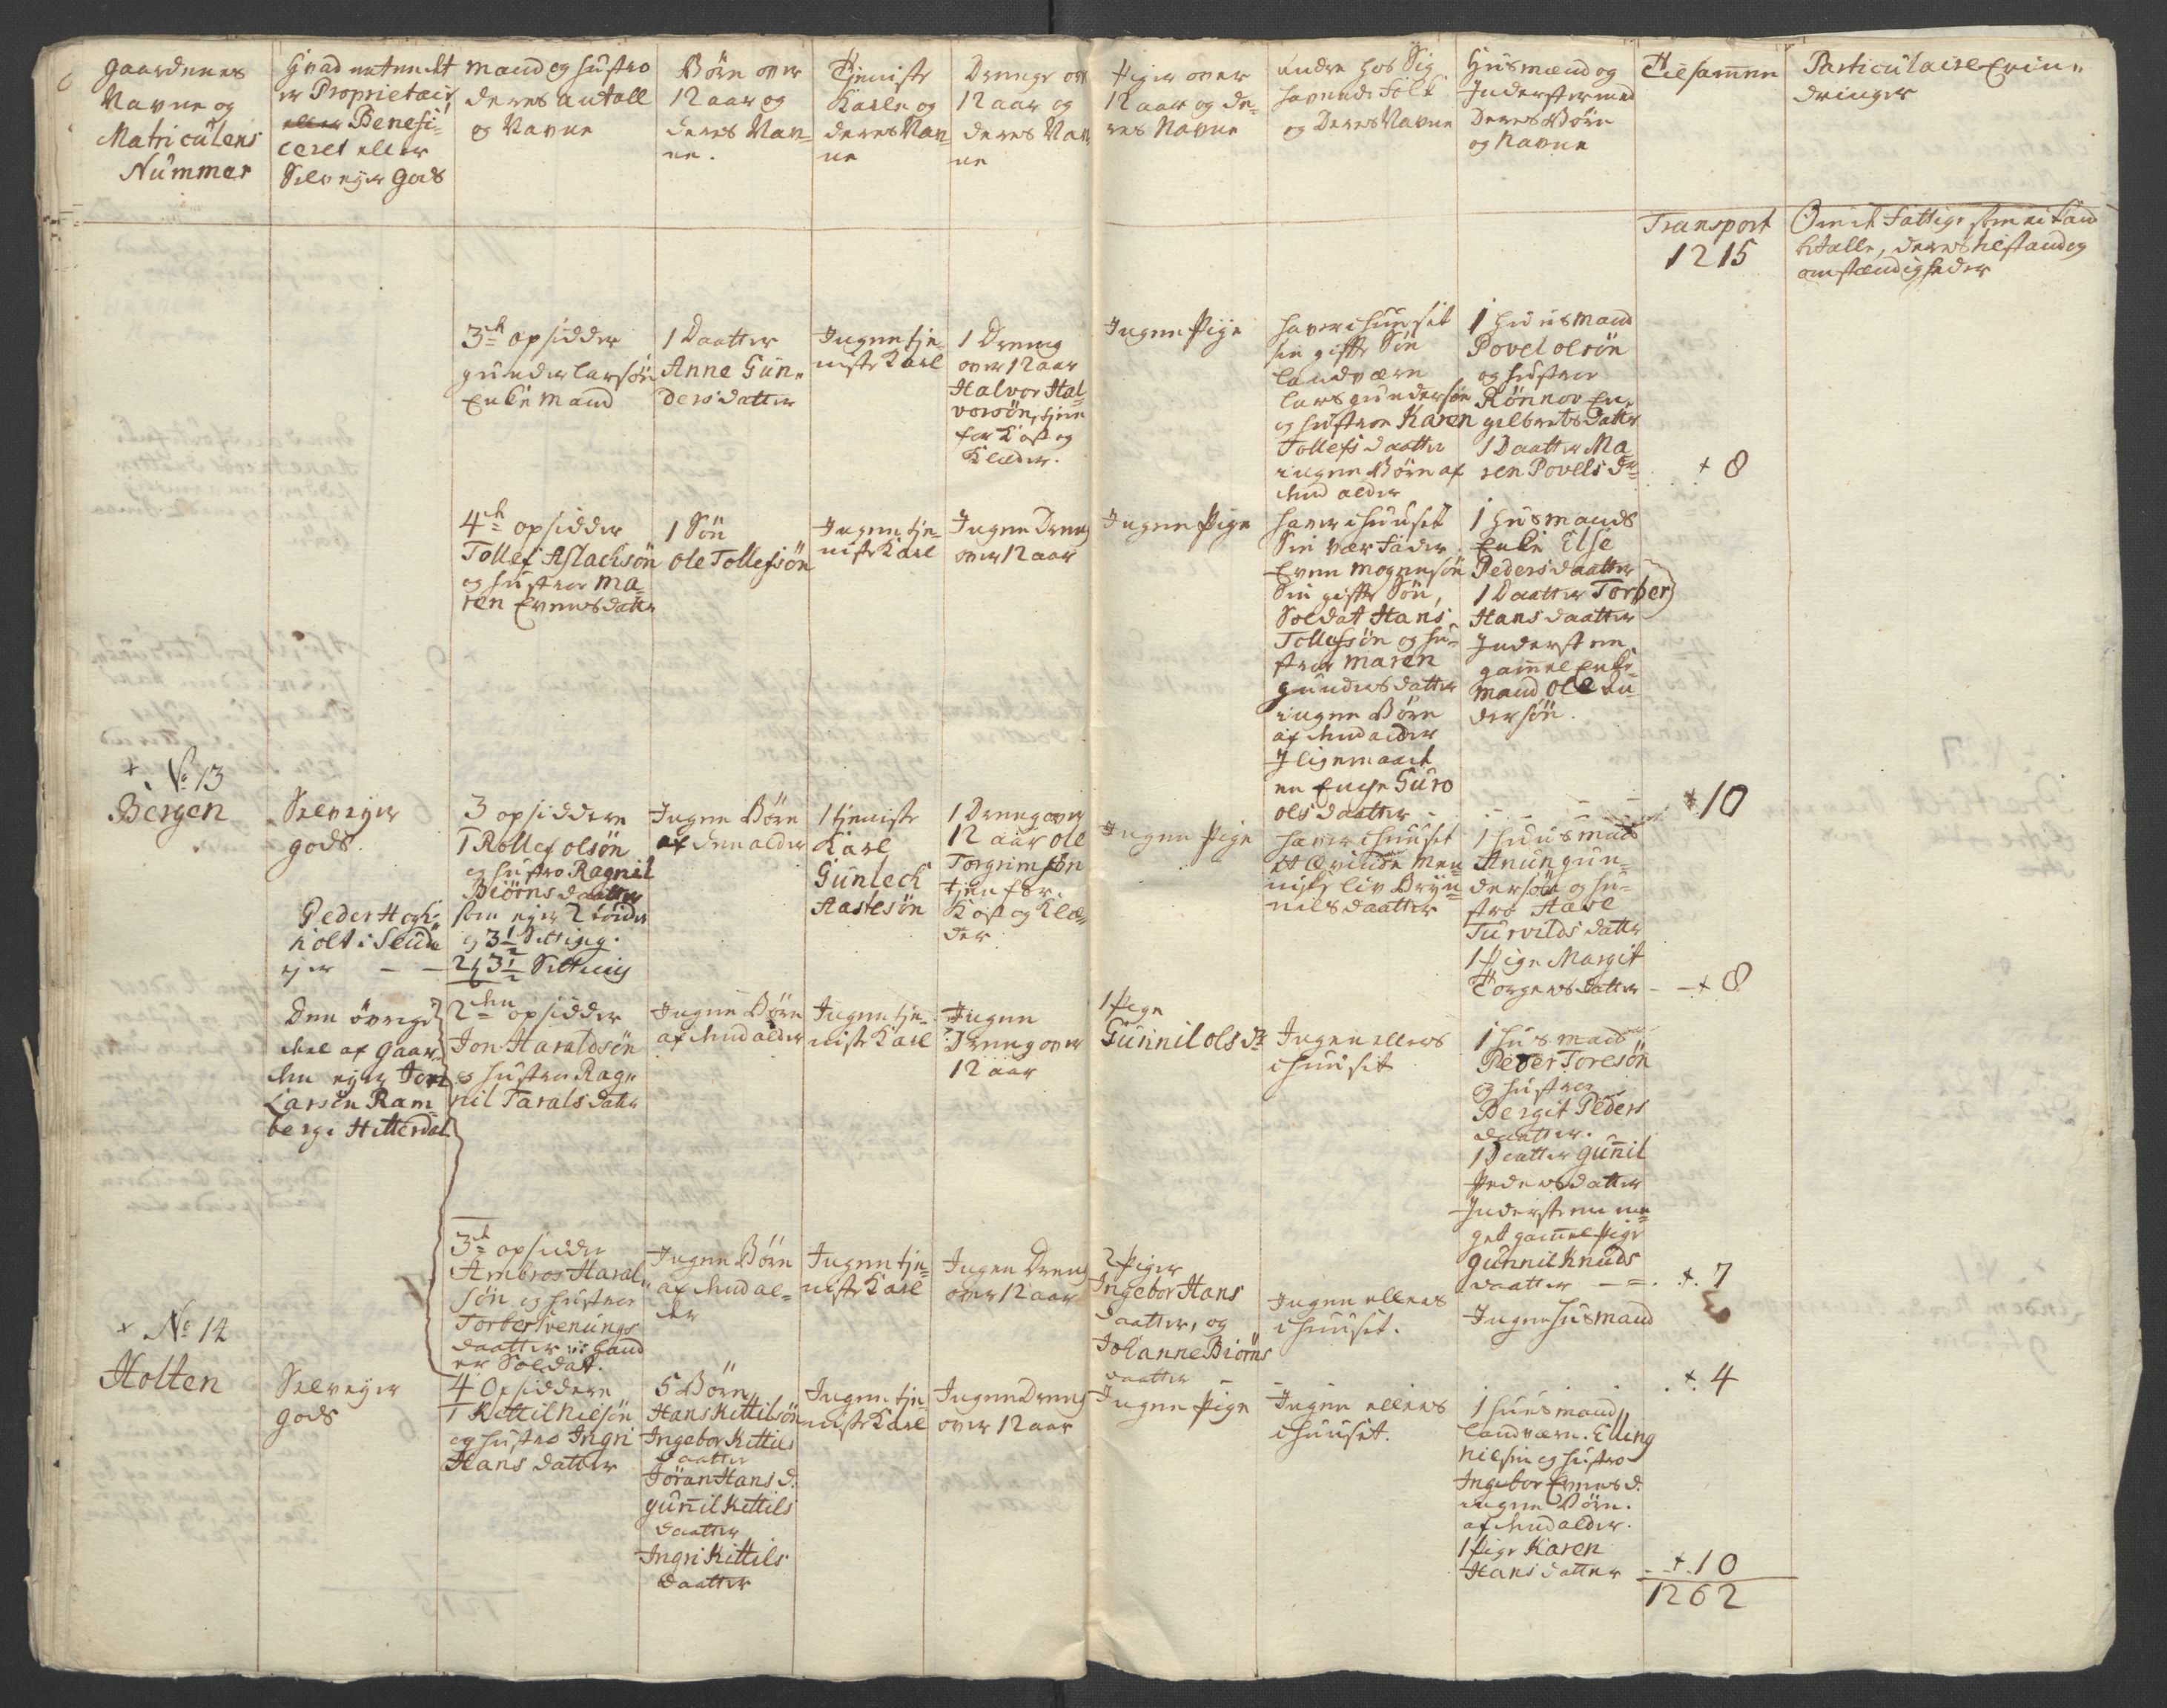 Gaardenes
Navne og
Matriculens
Nummer
Hvad enten det
er Proprietair
eller Benefi-
ceret eller
Selveyer Gods
Mand og Hustro
deres Antall
og Navne
Børn over
12 aar og
deres Nav-
ne.
Tjeniste
Karle og
deres Nav-
ne
Drenge over
12 aar og
deres Nav-
ne
Piger over
12 aar og de-
res Navne
Andre hos Sig
havende Folk
og Deres Navne
Huusmænd og
Inderster med
Deres Børn
og Navne
Tilsamen
Particulaire Erin-
dringer
Transport
1215
Om de Fattige som ei kand
betalle, deres tilstand og
omstændigheder
3die opsidder
gunder larsøn
Enke mand
1 Daatter
Anne Gun-
ders datter
Ingen tje-
niste Karl
1 Dreng
over 12 aar
Halvor Hal-
vorsøn, tjene
for Kost og
Klæder.
Ingen Pige
haver i huuset
sin gifte Søn
landværn
lars gundersøn
og hustroe Karen
Tollefs daatter
ingen Børn af
dend alder
1 huusmand
Povel olsøn
og hustroe
Rönnov En-
gelbrets datter
1 Daatter Ma
ren Povels dr
+ 8
4de opsidder
Tollef Aslachsøn
og hustroe Ma-
ren Evens datter
1 Søn
Ole Tollefsøn
Ingen tje-
niste Karl
Ingen Dreng
over 12 aar
Ingen Pige
haver i huuset
Sin vær Fader
Even Mogensøn
Sin gifte Søn,
Soldat Hans
Tollefsøn og hu-
stroe Maren
gunders datter
ingen Børn
af dend alder
Iligemaade
en Enche Guro
ols daatter
1 husmands
Enke Else
Peders daatter
1 Daatter Torber
Hans daatter
Inderst en
gamel Enke
mand Ole An-
dersøn.
+ 10
+ No 13
Bergen
Selveyer
gods.
Peder H
holt i Slude
ejer
3 opsiddere
1 Rollef olsøn
og hustro Ragnil
Biörns daatter
som ejer 2 huder
og 3 1/2 Setting
2 h 3 1/2 Setting
Ingen Børn
af den alder
1 tjeniste
Karl
Gunleck
Aaslesøn
1 Dreng over
12 aar ole
Torgrimsøn
tjene for
Kost og Klæ-
der
Ingen Pige
haver i huuset
et Qvinde men-
niske liv Bryn-
nils daatter
1 huusmand
Anun gun-
dersøn og hu-
stro Aase
Turvilds datter
1 Pige Margit
Torgers datter
+ 8
Den övrige
del af Gaar-
den ejer Jon
Larsen Ram-
berg i Hitterdal
2den opsidder
Jon Haraldsøn
og hustroe Rag-
nil Tarals datter
Ingen Børn
af dend alder
Ingen tje-
niste Karl
Ingen
Dreng over
12 aar
1 Pige
Gunnil ols dr
Ingen ellers
i huuset
1 husmand
Peder Toresøn
og hustroe
Bergit Peders
daatter.
1 Daatter gunil
Peders datter
Inderst en me-
get gamel Pige
gunnil Knuds
daatter
+ 7
3die opsidder
Ambros Haral-
søn og hustroe
Torber Svenungs
daatter
er Soldat.
Ingen Børn
af dend al-
der
Ingen tje-
niste Karl
Ingen Dreng
over 12 aar
2 Piger
Ingebor Hans
daatter, og
Johanne Biörns
daatter
Ingen ellers
i huuset.
Ingen husmand
+ 4
+ No 14
Holten
Selveyer
gods
4 Opsiddere
1 Kittil Nilsøn
og hustro Ingri
Hans datter
5 Børn
Hans Kittilsøn
Ingebor Kittils
daatter
Jöran Hans d.
gunil Kittils
daatter
Ingri Kittils
daatter
Ingen tje-
niste Karl
Ingen Dreng
over 12 aar
Ingen Pige
Ingen ellers
i huuset.
1 huusmand
landværn. Elling
Nilsøn og hustro
Ingebor Evens d.
ingen Børn.
af dend alder.
1 Pige Karen
Hans datter
+ 10
1262